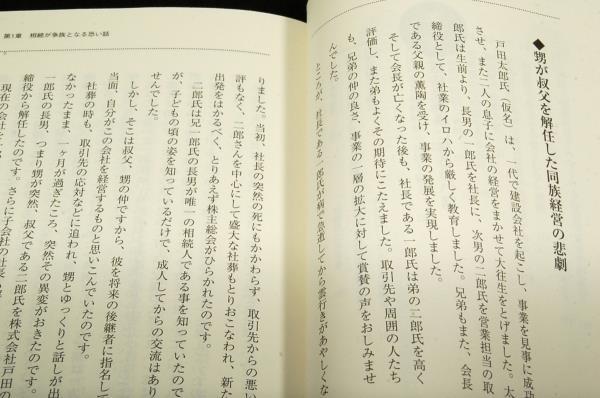 ◆甥が叔父を解任した同族経営の悲劇
戸田太郎氏(仮名)は、一代で建設会社を起こし、事業を見事に成功
させ、また二人の息子に会社の経営をまかせて大往生をとげました。太
郎氏は生前より、長男の一郎氏を社長に、次男の二郎氏を営業担当の取
締役として、社業のイロハから厳しく教育しました。兄弟もまた、会長
である父親の薫陶を受け、事業の発展を実現しました。
そして会長が亡くなった後も、社長である一郎氏は弟の二郎氏を高く
評価し、また弟もよくその期待にこたえました。取引先や周囲の人たち
も、兄弟の仲の良さ、事業の一層の拡大に対して賞賛の声をおしみませ
んでした。
ところが、社長である一郎氏が病で急逝してから雲行きがあやしくな
第1章 相続が争族となる恐い話
りました。当初、社長の突然の死にもかかわらず、取引先からの悪い
評もなく、二郎さんを中心にして盛大な社葬もとりおこなわれ、新た
出発をはかるべく、とりあえず株主総会がひらかれたのです。
二郎氏は兄一郎氏の長男が唯一の相続人である事を知っていたので
が、子どもの頃の姿を知っているだけで、成人してからの交流はあり
せんでした。
しかし、そこは叔父、甥の仲ですから、彼を将来の後継者に指名して
当面、自分がこの会社を経営するものと思いこんでいたのです。
社葬の時も、取引先の応対などに追われ、甥とゆっくりと話しが出
なかったまま、一ヶ月が過ぎたころ、突然その異変がおきたのです。
一郎氏の長男、つまり甥が突然、叔父である二郎氏を株式会社戸田の
締役から解任したのです。さらに子会社の社長
現在の会社と